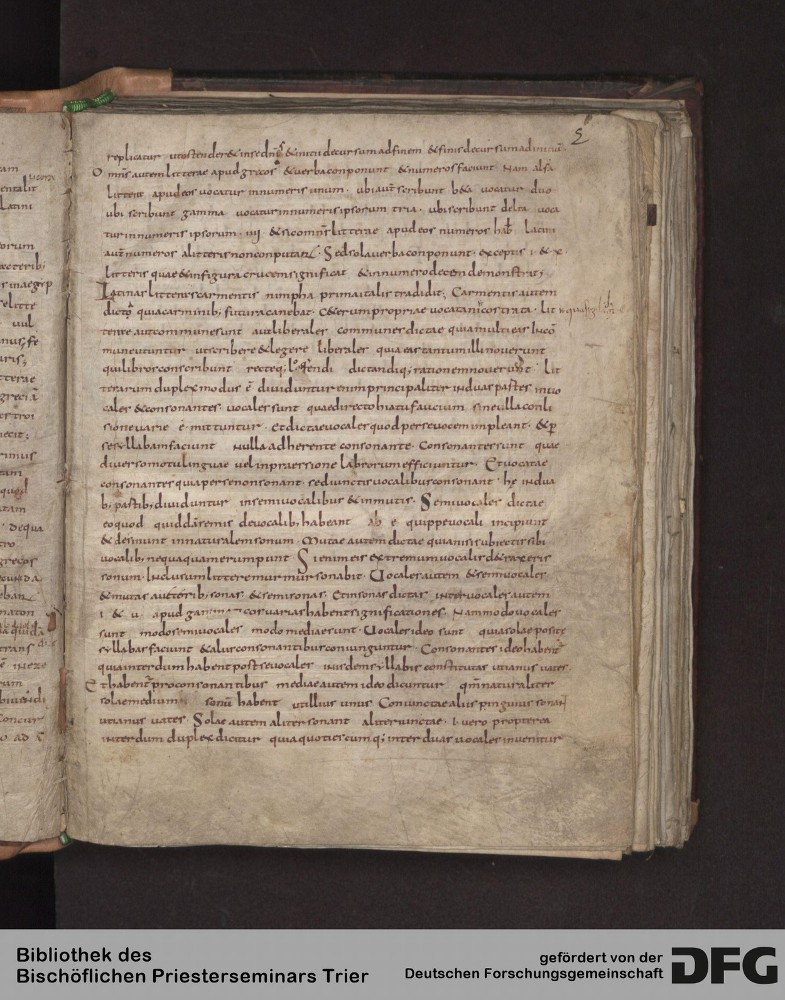 5
replicatur utostender& insedn̄s &initii decursum adfinem &finis decursum adinitiū.
Omnis autem litterae apud grecos &uerba conponunt &numeros faciunt. Nam alfa
littera apud eos uocatur innumeris unum. ubi aut̄ scribunt b&a uocatur duo
ubi scribunt gamma uocatur innumeris ipsorum tria. ubi scribunt delta uoca
tur innumeris ipsorum. iiii. &sic omnis litterae apud eos numeros hab̄. latini
aut̄ numeros alitteris non computant. Sed sola uerba conponunt. exceptis i. & x.
litteris quae &infigura crucem significat &innumero decem demonstrat;
Latinas litteras carmentis nimpha prima italis tradidit; Carmentis autem
dicta quia carminib; futura canebat. C&erum propriae uocata nicostrata. lit
terae aut communes sunt aut liberales communes dictae quia multi eas incō
mune utuntur ut scribere &legere liberales quia eas tantum illi nouerunt
qui libros conscribunt recteq; loquendi dictandiq; rationem nouerunt. lit
terarum duplex modus ē diuiduntur enim principaliter induas partes inuo
cales &consonantes uocales sunt quae directo hiatu faucium sine ulla conli
sione uarie emittuntur. et dictae uocales quod per se uocem impleant. &p
se syllabam faciunt nulla adherente consonante. Consonantes sunt quae
diuerso motu linguae uel inpraessione labrorum efficiuntur. Et uocatae
consonantes quia per se non sonant. sed iunctis uocalibus consonant. he indua
b; partib; diuiduntur insemiuocalibus &inmutis. Semiuocales dictae
eo quod quiddā semis deuocalib; habeant ab e quippe uocali incipiunt
&desinunt innaturalem sonum. Mutae autem dictae quia nisi subiectis sibi
uocalib; nequaquam erumpunt Si enim eis extremum uocalis d&raxeris
sonum. Inclusum littere murmur sonabit. Uocales autem &semiuocales
&mutas ueteres sonas &semisonas. Et insonas dictas inter uocales autem
i &u. apud gammaticos uarias habent significationes. Nam modo uocales
sunt modo semiuocales modo mediae sunt. Uocales ideo sunt quia solae positae
syllabas faciunt &aliis consonantibus coniunguntur. Consonantes ideo habent
quia interdum habent post se uocales in isdem syllabis constitutas ut ianus uates.
Et habent pro consonantibus mediae autem ideo dicuntur qm̄ naturaliter
solae medium sonū habent ut illius unus Coniunctae aliis pinguius sonant
ut ianus uates. Solae autem aliter sonant aliter iunctae. I. uero propterea
interdum duplex dicitur quia quotiescumq; inter duas uocales inuenitur
Bibliothek des
Bischöflichen Priesterseminars Trier
gefördert von der
Deutschen Forschungsgemeinschaft
DFG